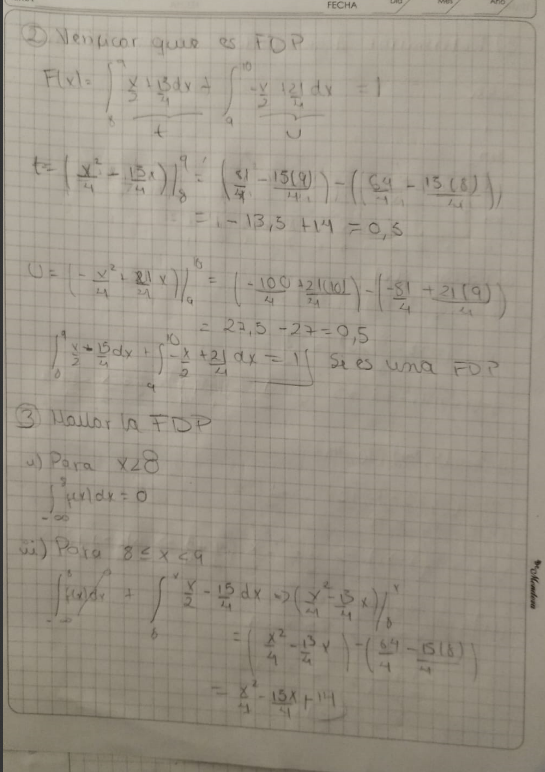 FECHA
② Verificar que es FDP
F(x) = ∫₈⁹ x/2 + 15/4 dx + ∫₉¹⁰ -x/2 + 21/4 dx = 1
t u
t = (x²/4 - 15/4 x)|₈⁹ = (81/4 - 15(9)/4) - (64/4 - 15(8)/4)
= -13,5 + 14 = 0,5
U = (-x²/4 + 21/4 x)|₉¹⁰ = (-100/4 + 21(10)/4) - (-81/4 + 21(9)/4)
= 27,5 - 27 = 0,5
∫₈⁹ x/2 - 15/4 dx + ∫₉¹⁰ -x/2 + 21/4 dx = 1 Si es una FDP
③ Hallar la FDP
i) Para x<8
∫₋∞⁸ f(x) dx = 0
ii) Para 8 ≤ x < 9
∫₋∞⁸ f(x) dx + ∫₈ˣ x/2 - 15/4 dx => (x²/4 - 15/4 x)|₈ˣ
= (x²/4 - 15/4 x) - (64/4 - 15(8)/4)
= x²/4 - 15x/4 + 14